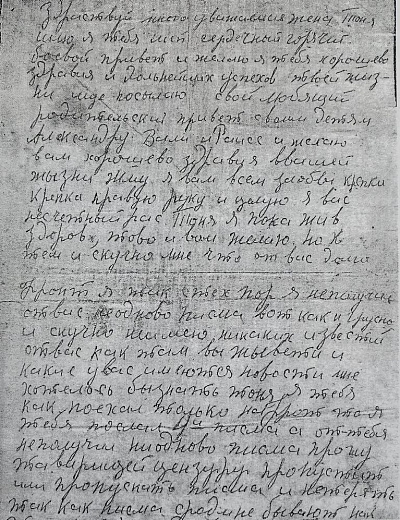 Здраствуй много уважаимая жена Тоня
шлю я тебя свой сердечный горячий
боевой привет и желаю я тебя хорошево
здравия и дальнейших успехов твоей жиз-
ни ище посылаю свой любящий
родительский привет своим детям
Александру Вали и Раисе и желаю
вам хорошево здравия ввашей
жызни жму я вам всем заобы крепка
крепка правую руку и целую я вас
несчетный рас Тоня я пока жив
здоров, тово и вам желаю, но
тем и скучно мне что от вас долго
фронт я так стех пор я неполучил
отвас неодново писма вот как и грусно
и скучно неимею никаких известий
отвас как там вы жывети и
какие увас имеются новости мне
хотелось бызнать тоня я тебя
как поехал только нафронт то я
тебя послал писма а оттебя
неполучил ниодново писма прошу
таварищей цензуры пропустить
или пропускать писма и нетерять
так как писма средмне бывают как